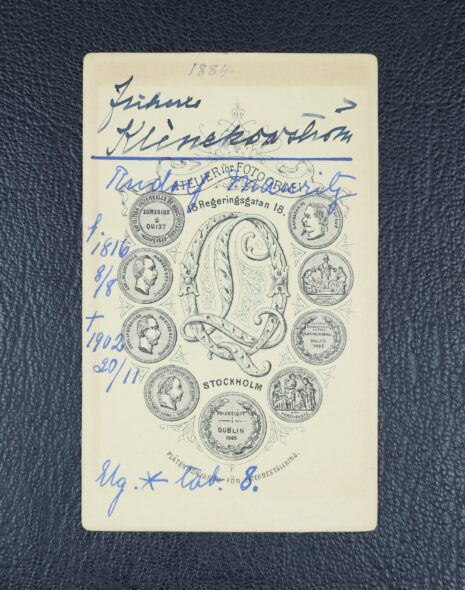 1884.
Friherre
Klinckowström
Rudolf Mauritz
ATELIER für FOTOGRAFI
18 Regeringsgatan 18.
EURENIUS
&
QUIST
f.
1816
8/8
+
1902
20/11
MALMÖ
1865
STOCKHOLM
DUBLIN
1865
PLÅTEN FÖRVARAS FÖR EFTERBESTÄLLNING.
Ug. * tab. 8.